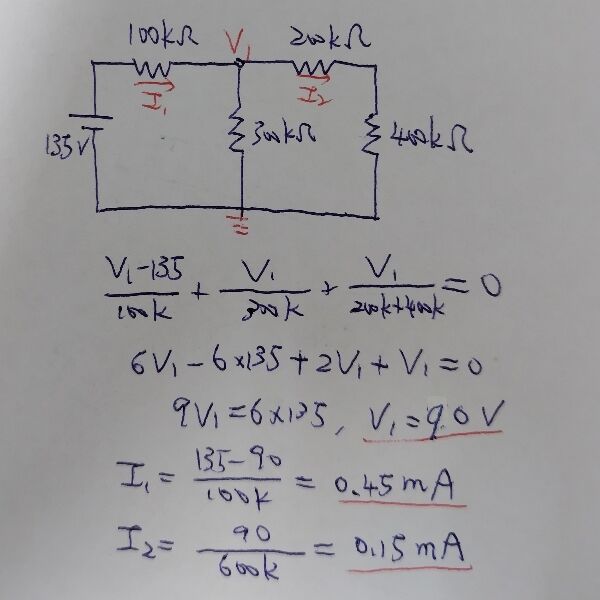 100kΩ V₁ 200kΩ
I₁ I₂
135V 300kΩ 400kΩ
(V₁-135)/100k + V₁/300k + V₁/(200k+400k) = 0
6V₁-6×135+2V₁+V₁=0
9V₁=6×135, V₁=9.0V
I₁= (135-90)/100k = 0.45mA
I₂= 90/600k = 0.15mA